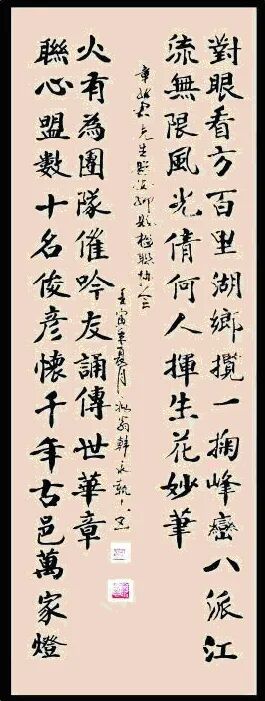 對眼看方百里湖鄉攬一掬峰巒八派江
流無限風光倩何人揮生花妙筆
聯心盟數十名俊彦懷千年古邑萬家燈
火有為團隊催吟友誦傳世華章
先生
壬寅年夏月